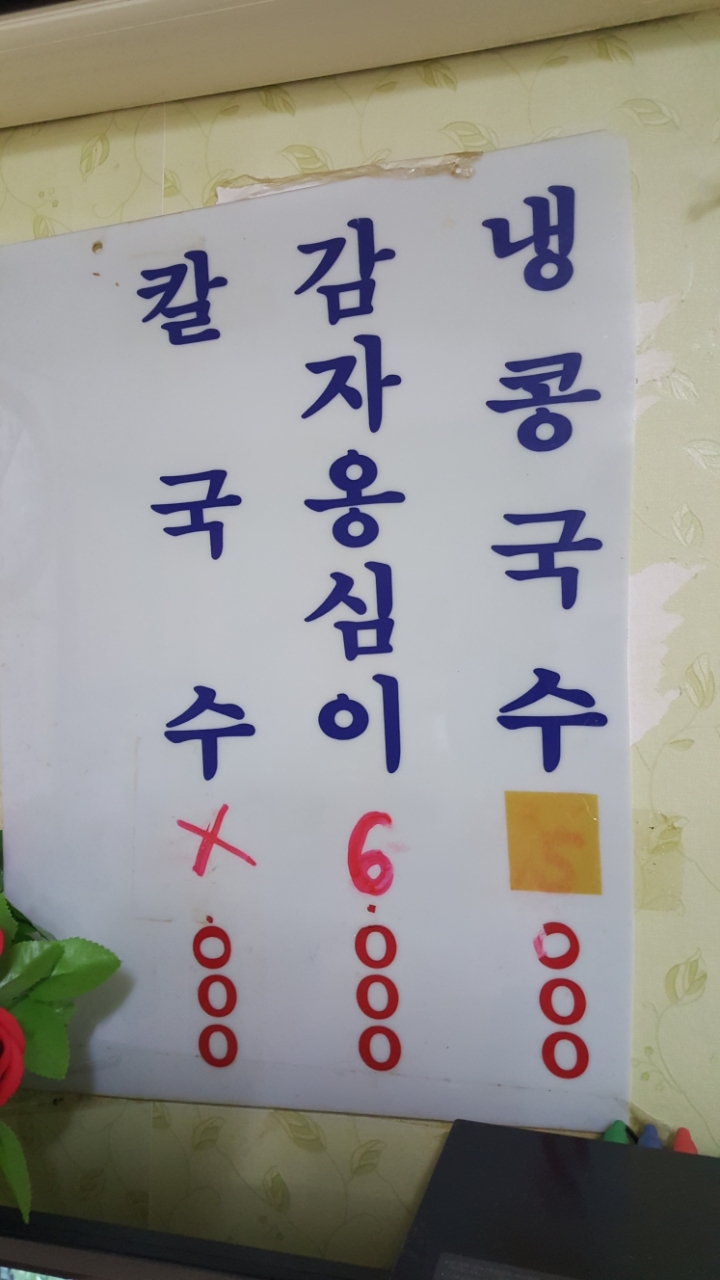 냉콩국수 5000
감자옹심이 6.000
칼국수 X.000